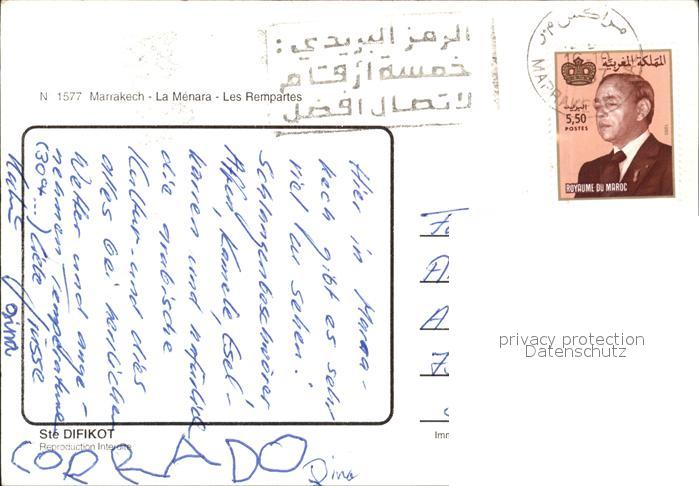 الرمز البريدي :
خمسة أرقام
لاتصال افضل
مراكش
المملكة المغربية
البريد
5,50
POSTES
ROYAUME DU MAROC
N 1577 Marrakech - La Ménara - Les Rempartes
Hier in Marra-
kech gibt es sehr
viel zu sehen:
Schlangenbeschwörer
Affen, Kamele, Esel-
karren und natürlich
die arabische
Kultur - und dies
alles bei herrlichem
Wetter und ange-
nehmen Temperaturen
(30° ...) Liebe Grüsse
privacy protection
Datenschutz
Sté DIFIKOT
Reproduction Interdite
Imm
CORRADO
Dina